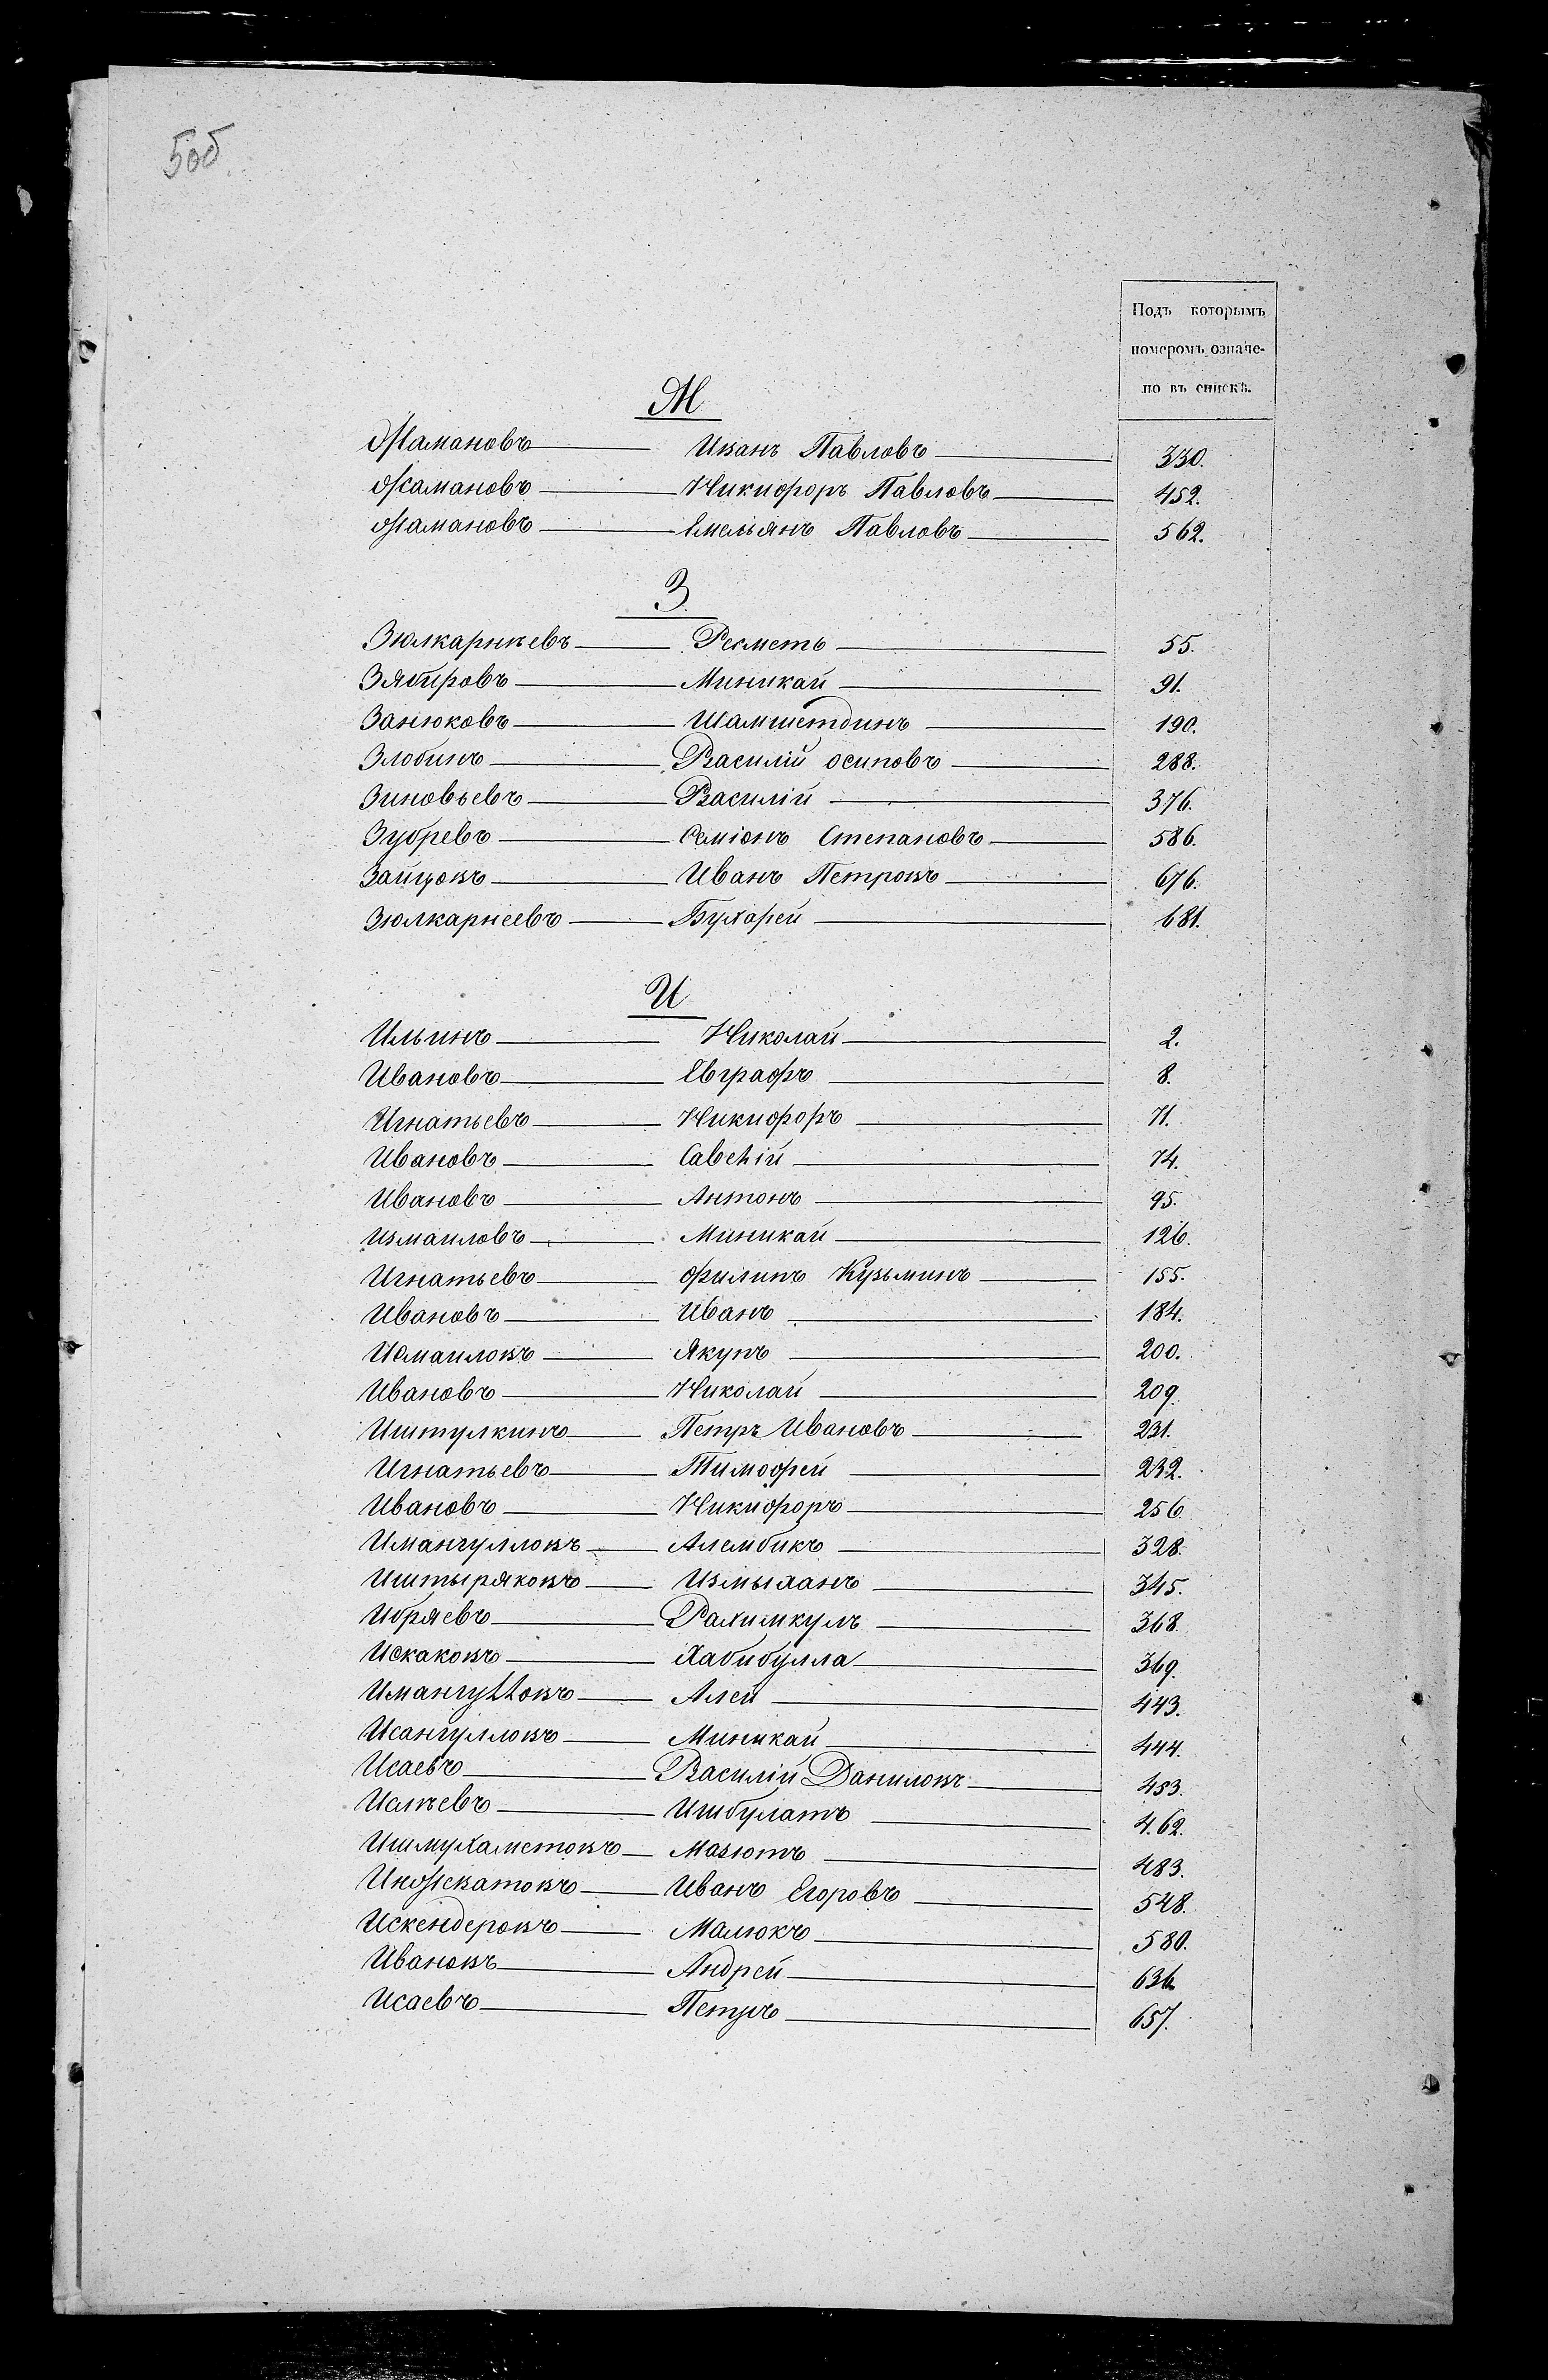 5об.
Подъ которымъ
номеромъ означе-
но въ спискѣ.
Ж
Жамановъ Иванъ Павловъ 330.
Жамановъ Никифоръ Павловъ 452.
Жамановъ Емельянъ Павловъ 562.
З
Зюлкарнѣевъ Рехметь 55.
Зябировъ Миникай 91.
Занюковъ Шамшетдинъ 190.
Злобинъ Василій Осиповъ 288.
Зиновьевъ Василій 376.
Зубревъ Семіонъ Степановъ 586.
Зайцовъ Иванъ Петровъ 676.
Зюлкарнеевъ Бухарей 681.
И
Ильинъ Николай 2.
Ивановъ Евграфъ 8.
Игнатьевъ Никифоръ 71.
Ивановъ Савелій 74.
Ивановъ Антонъ 95.
Измаиловъ Миникай 126.
Игнатьевъ Филипъ Кузьминъ 155.
Ивановъ Иванъ 184.
Исмаиловъ Якупъ 200.
Ивановъ Николай 209.
Иштулкинъ Петръ Ивановъ 231.
Игнатьевъ Тимофей 232.
Ивановъ Никифоръ 256.
Имангулловъ Алембикъ 328.
Иштыряковъ Измыханъ 345.
Ибряевъ Рахимкулъ 368.
Искаковъ Хабибулла 369.
Имангулловъ Алей 443.
Исангулловъ Миникай 444.
Исаевъ Василій Даниловъ 453.
Ислѣевъ Ишбулатъ 462.
Ишмухаметовъ Мазютъ 483.
Иножеватовъ Иванъ Егоровъ 548.
Искендеровъ Малюкъ 580.
Ивановъ Андрей 636.
Исаевъ Петръ 657.